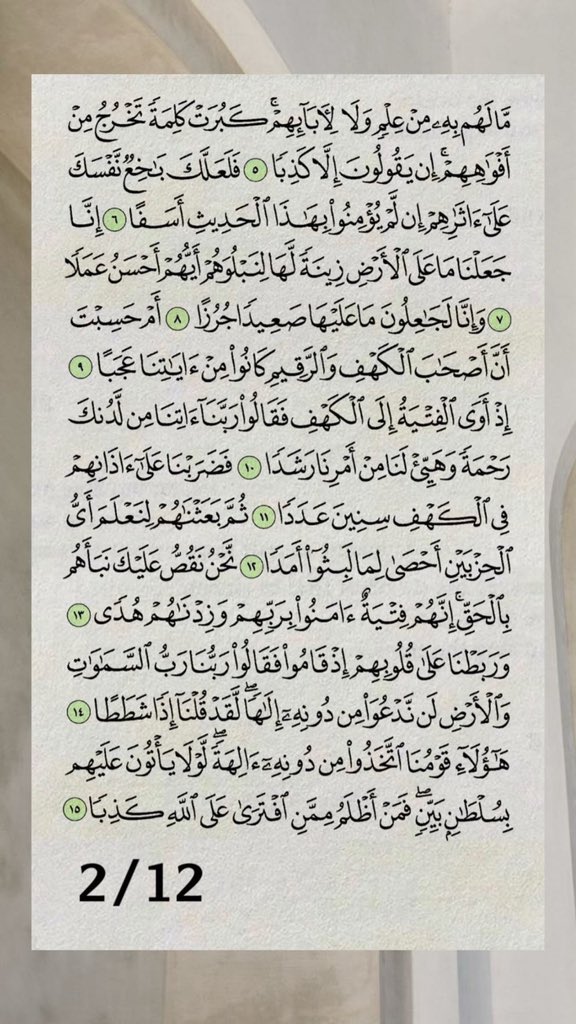 مَّا لَهُم بِهِۦ مِنْ عِلْمٍ وَلَا لِأٓبَآئِهِمْۚ كَبُرَتْ كَلِمَةً تَخْرُجُ مِنْ
أَفْوَٰهِهِمْۚ إِن يَقُولُونَ إِلَّا كَذِبًا ٥ فَلَعَلَّكَ بَٰخِعٌ نَّفْسَكَ
عَلَىٰٓ ءَاثَٰرِهِمْ إِن لَّمْ يُؤْمِنُوا۟ بِهَٰذَا ٱلْحَدِيثِ أَسَفًا ٦ إِنَّا
جَعَلْنَا مَا عَلَى ٱلْأَرْضِ زِينَةً لَّهَا لِنَبْلُوَهُمْ أَيُّهُمْ أَحْسَنُ عَمَلًا
٧ وَإِنَّا لَجَٰعِلُونَ مَا عَلَيْهَا صَعِيدًا جُرُزًا ٨ أَمْ حَسِبْتَ
أَنَّ أَصْحَٰبَ ٱلْكَهْفِ وَٱلرَّقِيمِ كَانُوا۟ مِنْ ءَايَٰتِنَا عَجَبًا ٩
إِذْ أَوَى ٱلْفِتْيَةُ إِلَى ٱلْكَهْفِ فَقَالُوا۟ رَبَّنَآ ءَاتِنَا مِن لَّدُنكَ
رَحْمَةً وَهَيِّئْ لَنَا مِنْ أَمْرِنَا رَشَدًا ١٠ فَضَرَبْنَا عَلَىٰٓ ءَاذَانِهِمْ
فِى ٱلْكَهْفِ سِنِينَ عَدَدًا ١١ ثُمَّ بَعَثْنَٰهُمْ لِنَعْلَمَ أَىُّ
ٱلْحِزْبَيْنِ أَحْصَىٰ لِمَا لَبِثُوٓا۟ أَمَدًا ١٢ نَّحْنُ نَقُصُّ عَلَيْكَ نَبَأَهُم
بِٱلْحَقِّۚ إِنَّهُمْ فِتْيَةٌ ءَامَنُوا۟ بِرَبِّهِمْ وَزِدْنَٰهُمْ هُدًى ١٣
وَرَبَطْنَا عَلَىٰ قُلُوبِهِمْ إِذْ قَامُوا۟ فَقَالُوا۟ رَبُّنَا رَبُّ ٱلسَّمَٰوَٰتِ
وَٱلْأَرْضِ لَن نَّدْعُوَا۟ مِن دُونِهِۦٓ إِلَٰهًاۖ لَّقَدْ قُلْنَآ إِذًا شَطَطًا ١٤
هَٰٓؤُلَآءِ قَوْمُنَا ٱتَّخَذُوا۟ مِن دُونِهِۦٓ ءَالِهَةًۖ لَّوْلَا يَأْتُونَ عَلَيْهِم
بِسُلْطَٰنٍۭ بَيِّنٍۖ فَمَنْ أَظْلَمُ مِمَّنِ ٱفْتَرَىٰ عَلَى ٱللَّهِ كَذِبًا ١٥
2/12